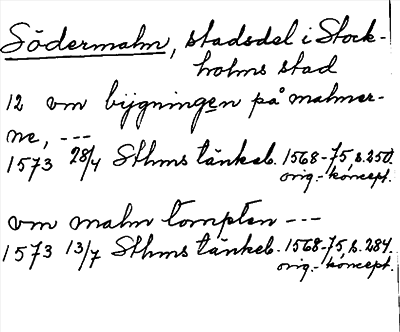 Södermalm, stadsdel i Stock-
holms stad
12 om bijgningen på malmer-
ne, ---
1573 28/4 Sthms tänkeb. 1568-75, s. 250.
orig.- koncept.
om malm tompten ---
1573 13/7 Sthms tänkeb. 1568-75, s. 284.
orig.- koncept.